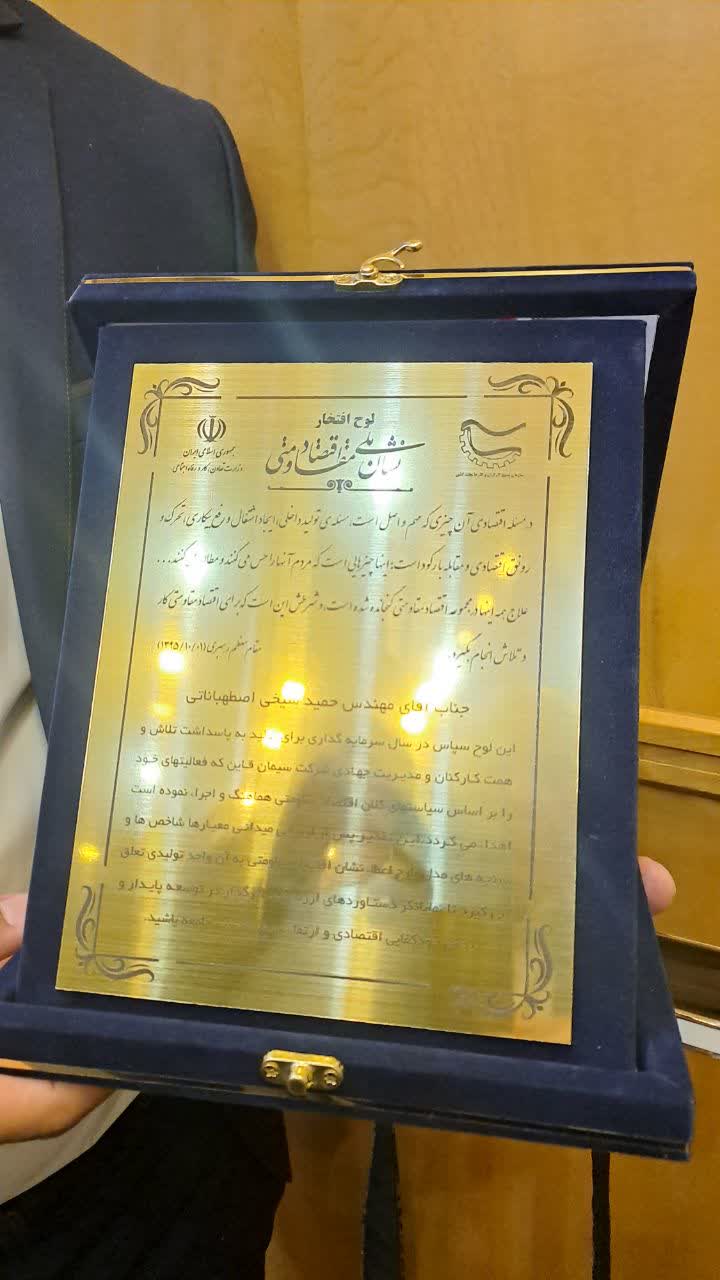 لوح افتخار
نشان ملی اقتصاد مقاومتی
جمهوری اسلامی ایران
وزارت تعاون، کار و رفاه اجتماعی
در مسئله اقتصادی آن چیزی که مهم و اصل است، مسئله‌ی تولید داخلی، ایجاد اشتغال و رفع بیکاری، تحرک و
رونق اقتصادی و مقابله با رکود است؛ اینها چیزهایی است که مردم آنها را حس می‌کنند و مطالبه می‌کنند...
علاج همه اینها در مجموعه اقتصاد مقاومتی گنجانده شده است، و شرطش این است که برای اقتصاد مقاومتی کار
و تلاش انجام بگیرد.
مقام معظم رهبری (۱۳۹۵/۱۰/۰۱)
جناب آقای مهندس حمید شیخی اصطهباناتی
این لوح سپاس در سال سرمایه گذاری برای تولید به پاسداشت تلاش و
همت کارکنان و مدیریت جهادی شرکت سیمان قاین که فعالیتهای خود
را بر اساس سیاستهای کلان اقتصاد مقاومتی هماهنگ و اجراء نموده است
اهداء می گردد. این تقدیر پس از میدانی معیارها شاخص ها و
های مدل اعطا نشان مقاومتی به آن واحد تولیدی تعلق
گیرد تا نمایانگر دستاوردهای در توسعه پایدار و
خودکفایی اقتصادی و ارتقا جامعه باشید.